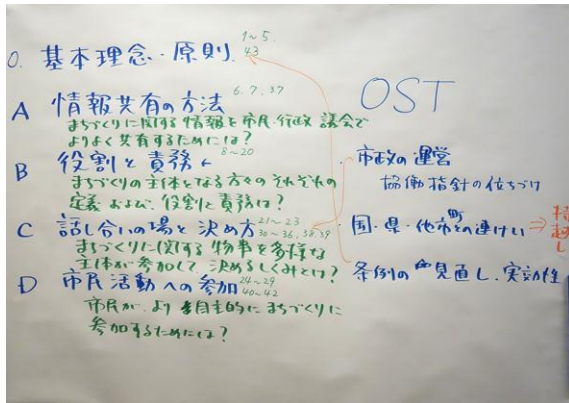 0. 基本理念・原則. 1~5. 43
A 情報共有の方法 6.7.37
まちづくりに関する情報を市民・行政 議会で
よりよく共有するためには?
B 役割と責務 8~20
まちづくりの主体となる方々のそれぞれの
定義および、役割と責務は?
C 話し合いの場と決め方 21~23
30~36.38.39
まちづくりに関する物事を多様な
主体が参加して決めるしくみとは?
D 市民活動への参加 24~29
40~42
市民が、より自主的にまちづくりに
参加するためには?
OST
・市政の運営
協働指針の位ちづけ
国・県・他市町との連けい ⇒ 持越し
・条例の見直し、実効性